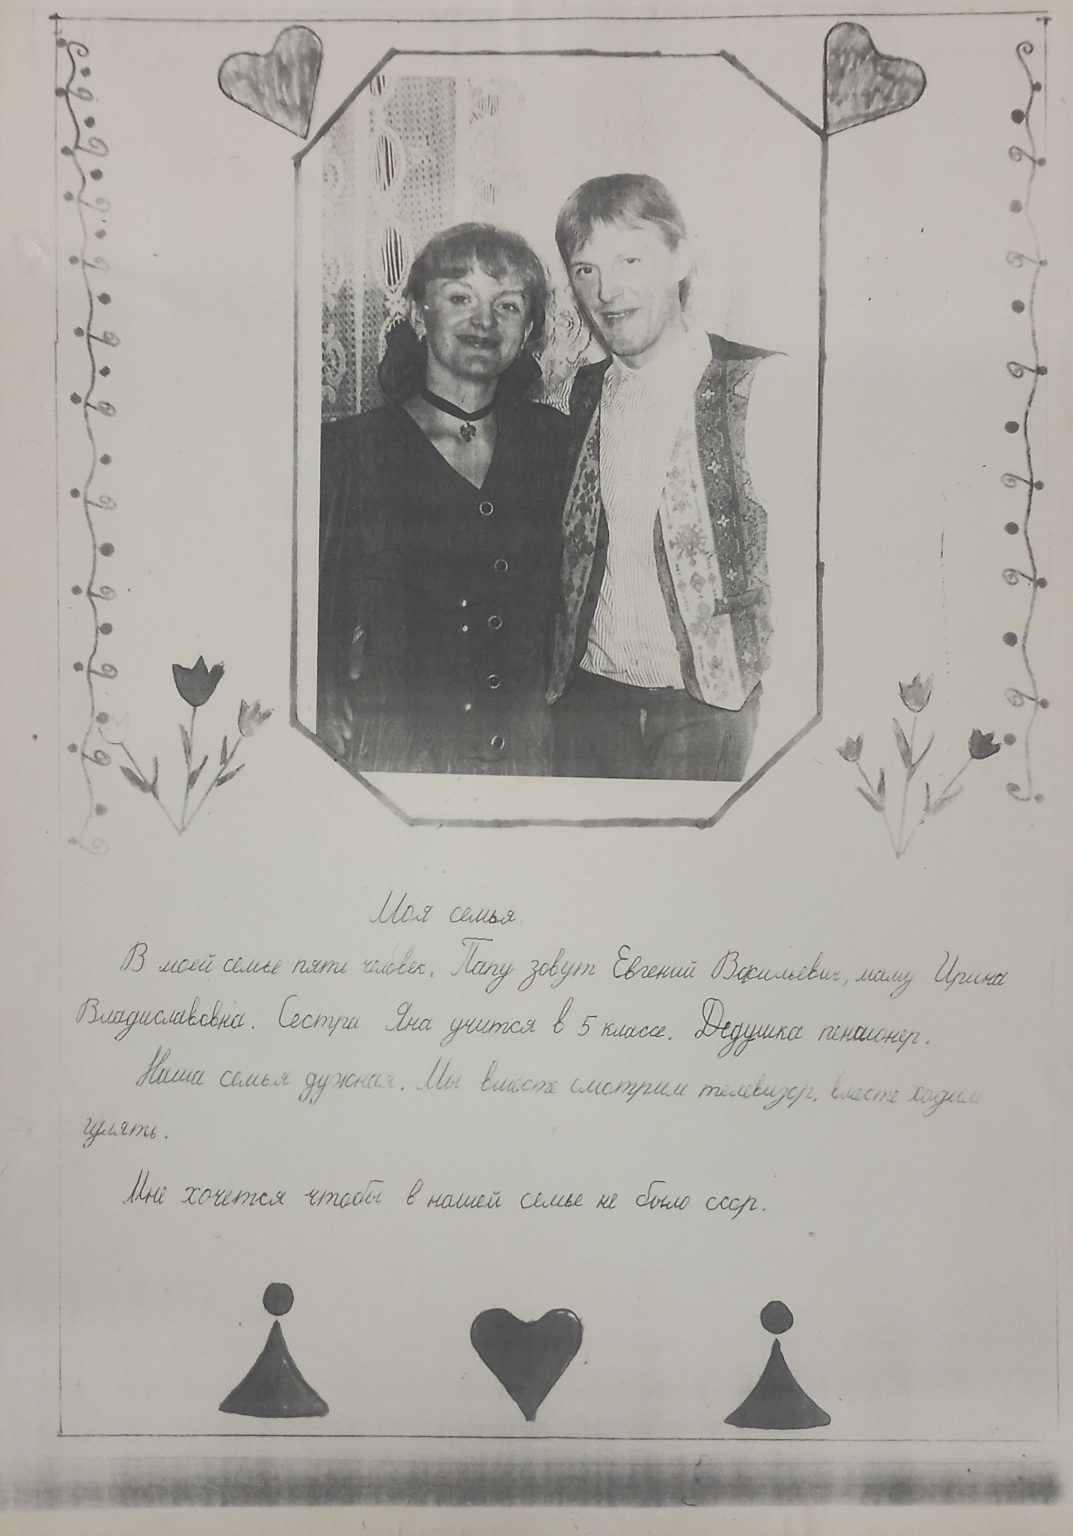 Моя семья
В моей семье пять человек. Папу зовут Евгений Васильевич, маму Ирина
Владиславовна. Сестра Яна учится в 5 классе. Дедушка пенсионер.
Наша семья дужная. Мы вместе смотрим телевизор, вместе ходим
гулять.
Мне хочется чтобы в нашей семье не было ссор.